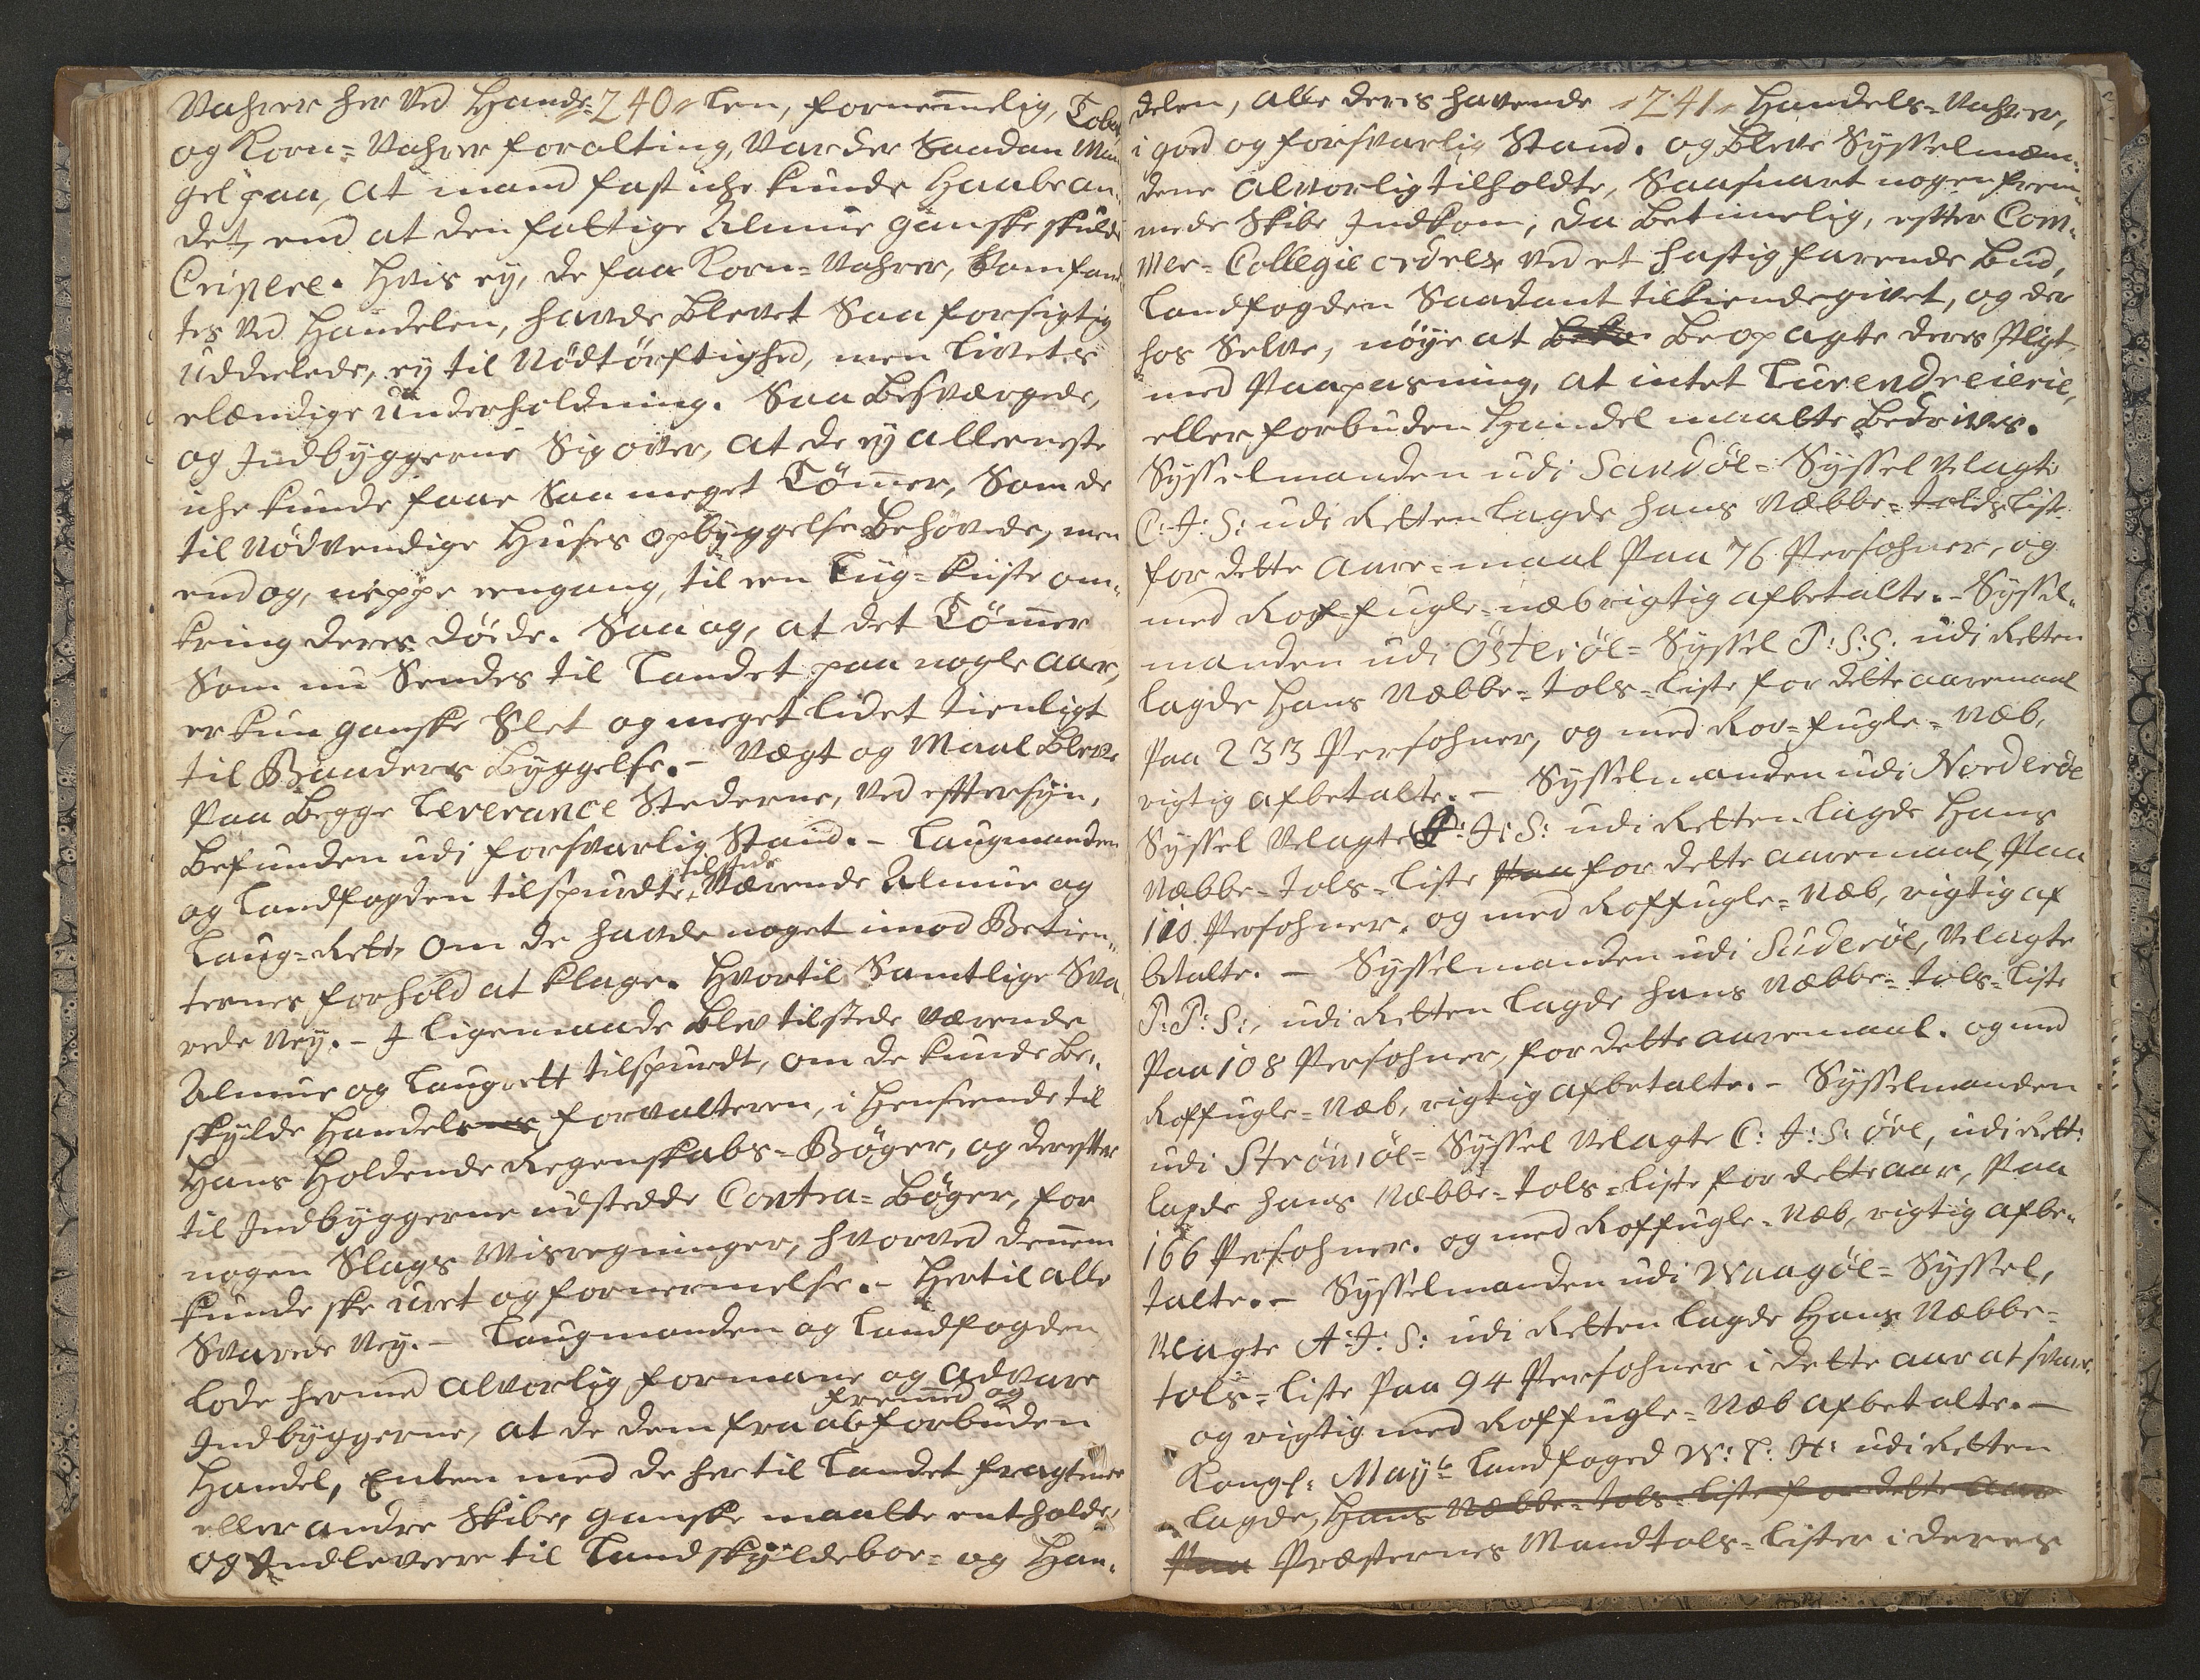 Vahrer her ved Hande= 240 len, fornemmelig, Tobak
og Korn=Vahrer foralting, var der Saadan Man„
gel paa, at mand fast iche kunde Haabe an„
det, end at den fattige Almue ganske skulde
Crepere. Hvis ey, de faa Korn=Vahrer, Som fand„
tes ved Handelen, havde blevet Saa forsigtig
Uddeelede, ey til Nödtörftighed, men Livets
elændige Underholdning. Saa besværgede,
og Indbyggerne Sig over, at de ey alleeneste
iche kunde faae Saa meget Tömmer, Som de
til nödvendige Huses opbyggelse behövede, men
endog, neppe eengang, til een Liig=Kiiste om„
kring deres döde. Saa og, at det Tömmer
Som nu Sendes til Landet paa nogle Aar,
er kun ganske Slet og meget lidet tienligt
til Bönders Byggelse.– Vægt og Maal bleve
paa begge Leverance Stederne, ved effter syn,
befunden udi forsvarlig Stand.– Laugmanden
og Landfogden tilspurdte, tilstede Værende Almue og
Laug=Rett, om de havde noget imod Betien„
ternes forhold at klage. Hvortil Samtlige Sva„
rede Ney.– I ligemaade blev tilstede værende
Almue og Laugrett tilspurdt, om de kunde be„
skylde Handels forvalteren, i Henseende til
Hans Holdende Regenskabs=Böger, og dereffter
til Indbyggerne udstædde Contra=Böger, for
nogen Slags Misregninger, hvorved dennem
kunde ske uret og fornermelse.– Hertil alle
Svarede Ney.– Laugmanden og Landfogden
lode hermed alvorlig formane og advare
Indbyggerne, at de dem fra al fremmed og forbuden
Handel, Enten med de her til Landet fragtende
eller andre Skibe, ganske maatte entholde,
og Indlevere til Landskyldeboe= og Han„
delen, alle deres havende 241 Handels=Vahrer,
i god og forsvarlig Stand. og bleve Sysselmæn„
dene alvorlig tilholdte, Saasnart nogen frem„
mede Skibe Indkom, da betimelig, effter Com„
mer=Collegie ordere ved et hastig farende bud,
Landfogden Saadant tilkiendegivet, og der
hos Selve, nöye at beopagte deres Pligt,
med Paapasning, at intet Lurendreierie,
eller forbuden Handel maatte bedrives.
Sysselmanden udi Sandöe=Syssel Velagte
C: J: S: udi Retten lagde hans Næbbe=Tolds List
for dette Aare=maal Paa 76 Persohner, og
med Rof=fugle=næb rigtig afbetalte.– Syssel„
manden udi Österöe=Syssel P: S: S: udi Retten
lagde Hans Næbbe=Tols=Liste for dette aaremaal
Paa 233 Persohner, og med Rov=fugle=Næb,
rigtig afbetalte.– Sysselmanden udi Norderöe
Syssel Velagte P: J: S: udi Retten lagde Hans
Næbbe=Tols=Liste Paa for dette aaremaal, Paa
110. Persohner, og med Roffugle=Næb, rigtig af
betalte.– Sysselmanden udi Suderöe, Velagte
P: P: S:, udi Retten lagde hans Næbbe=Tols=Liste
Paa 108 Persohner, for dette aaremaal. og med
Roffugle=Næb, rigtig afbetalte.– Sysselmanden
udi Strömöe=Syssel Velagte C: J: S: Öre, udi Rett:
lagde hans Næbbe=Tols=Liste for dette aar, Paa
166 Persohner. og med Roffugle=Næb, rigtig afbe„
talte.– Sysselmanden udi Waagöe=Syssel,
Velagte A: J: S: udi Retten lagde Hans Næbbe=
tols=Liste Paa 94 Persohner i dette aar at svare,
og rigtig med Roffugle=Næb afbetalte.–
Kongl: Mayts Landfoged W: C: H: udi Retten
lagde, Hans Næbbe=Tols=Liste for dette aar
Paa Præsternes Mandtols=Lister i deres